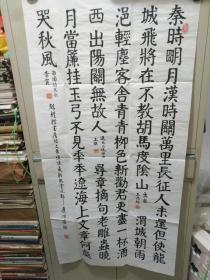 秦時明月漢時關萬里長征人未還但使龍
城飛將在不教胡馬度陰山 渭城朝雨
浥輕塵客舍青青柳色新勸君更盡一杯酒
西出陽關無故人 尋章摘句老雕蟲曉
月當簾挂玉弓不見年年遼海上文章何處
哭秋風